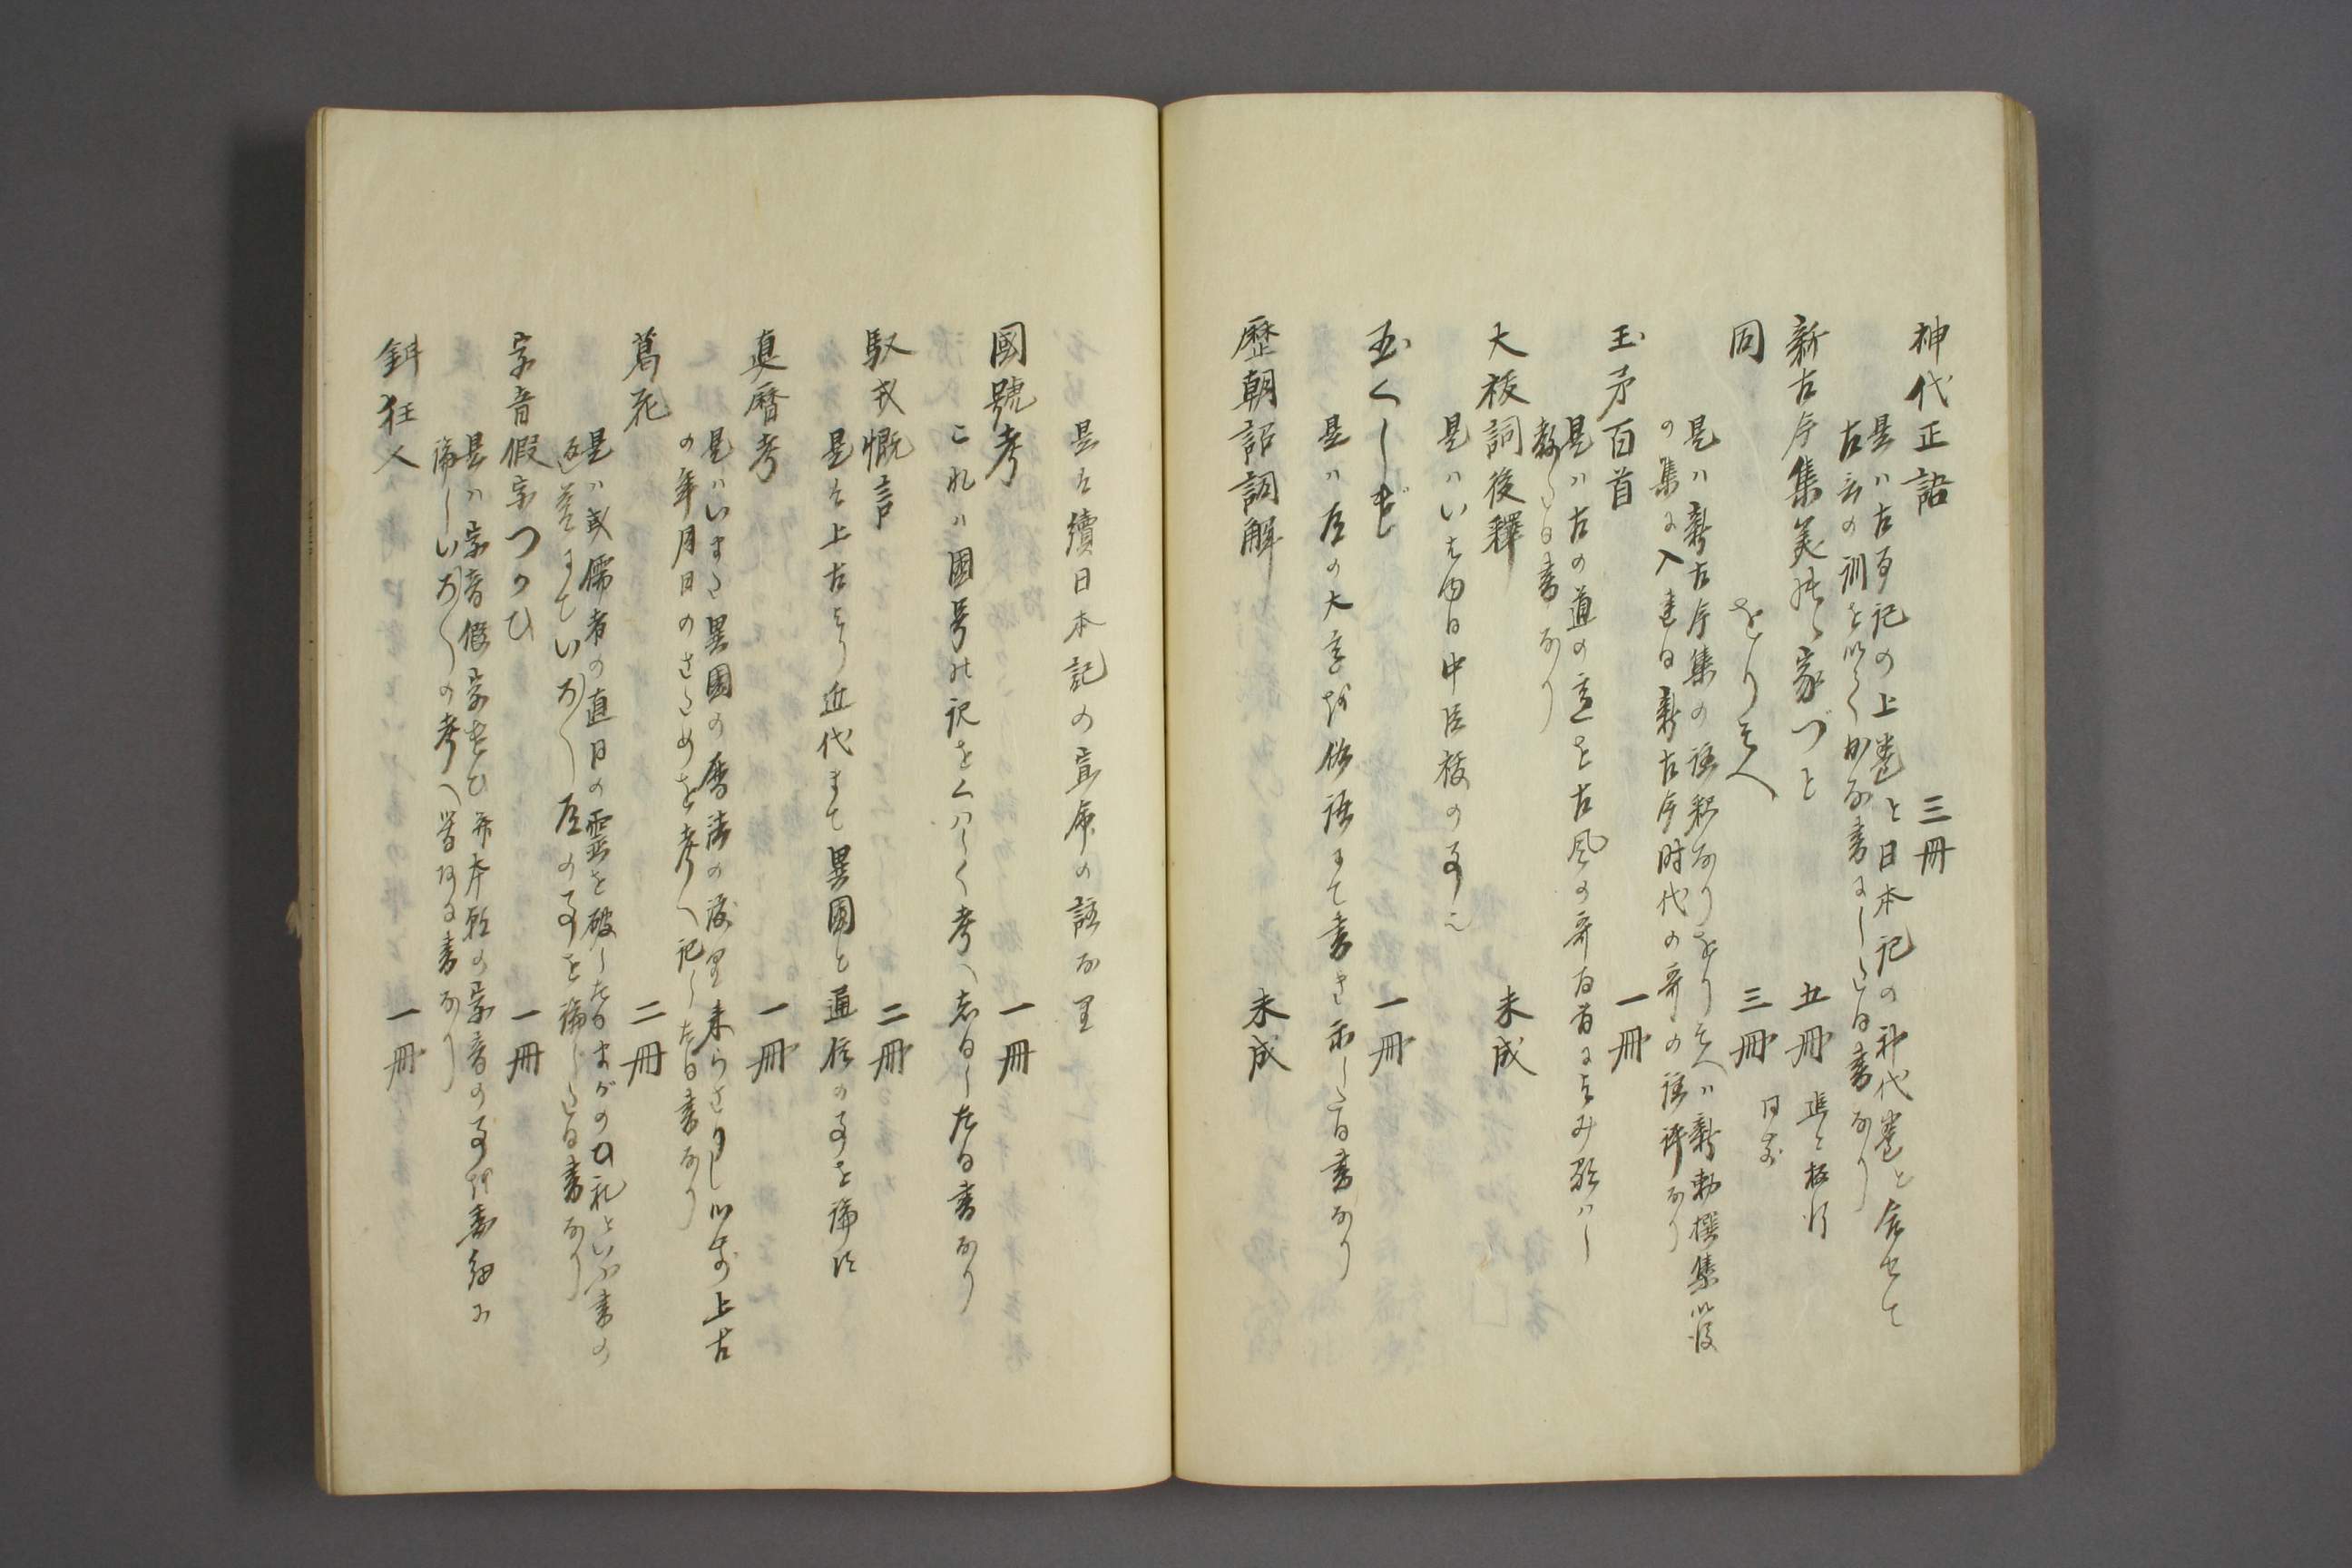 神代正語 三冊
是ハ古事記の上巻と日本記の神代巻と合せて
古言の訓を以てかな書にしたる書なり
新古今集美能ゝ家づと 五冊 追々板行
同 をりそへ 三冊 同前
是ハ新古今集の註釈なりをりそへハ新勅撰集以後
の集に入たる新古今時代の哥の註評なり
玉矛百首 一冊
是ハ古の道の意を古風の哥百首によみ顕ハし
教したる書なり
大祓詞後釋 未成
是ハいはゆる中臣祓の事也
玉くしげ 一冊
是ハ道の大意を俗語にて書き示したる書なり
歷朝詔詞解 未成
是は續日本記の宣命の註なり
國號考 一冊
これハ国号の訳をくハしく考へしるしたる書なり
馭戎慨言 二冊
是は上古より近代まて異国と通信の事を論す
真暦考 一冊
是ハいまた異国の暦法の渡り来らさりし以前上古
の年月日のさためを考へ記したる書なり
葛花 二冊
是ハ或儒者の直日の霊を破したるまがのひれといふ書の
返答にていろ〳〵道の事を論したる書なり
字音假字つかひ 一冊
是ハ字音假字遣ひ并本朝の字音の事を委細に
論しいろ〳〵の考へ等ある書なり
鉗狂人 一冊